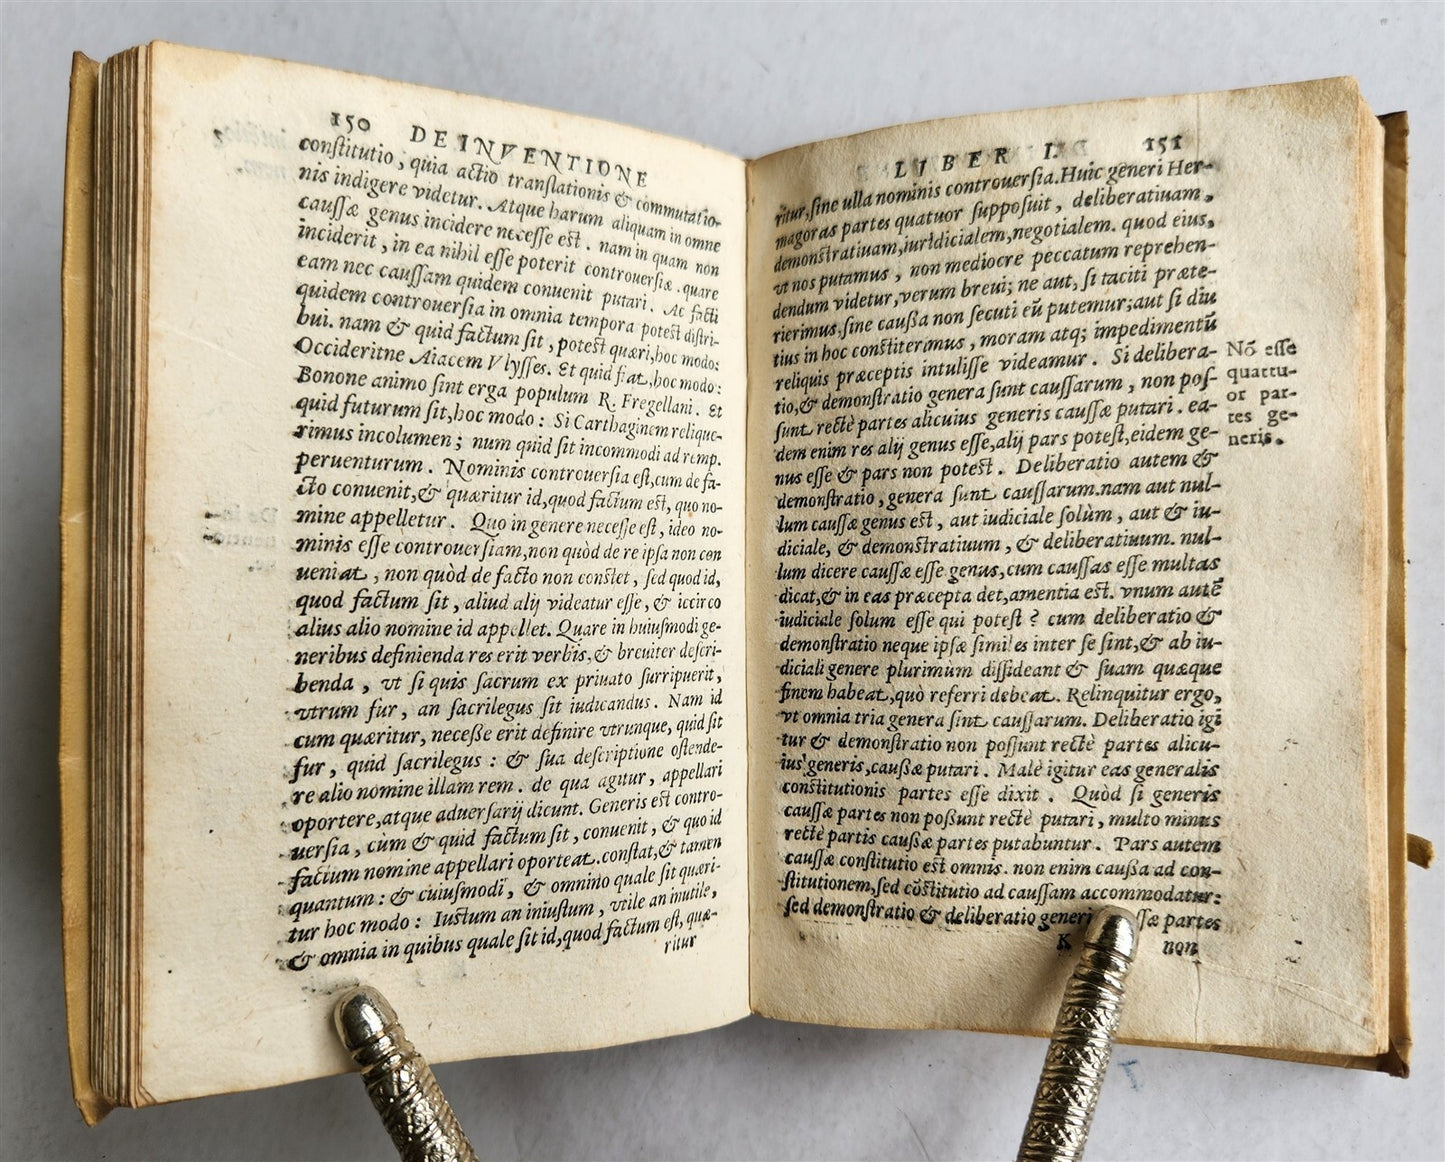 150 DE INVENTIONE
constitutio, quia actio translationis & commutatio-
nis indigere videtur. Atque harum aliquam in omne
caussæ genus incidere necesse est. nam in quam non
inciderit, in ea nihil esse poterit controuersiæ. quare
eam nec caussam quidem conuenit putari. Ac facti
quidem controuersia in omnia tempora potest distri-
bui. nam & quid factum sit, potest quæri, hoc modo:
Occideritne Aiacem Vlysses. Et quid fiat, hoc modo:
Bonone animo sint erga populum R. Fregellani. Et
quid futurum sit, hoc modo: Si Carthaginem relique-
rimus incolumem; num quid sit incommodi ad remp.
peruenturum. Nominis controuersia est, cum de fa-
cto conuenit, & quæritur id, quod factum est, quo no-
mine appelletur. Quo in genere necesse est, ideo no-
minis esse controuersiam, non quòd de re ipsa non con
ueniat, non quòd de facto non constet, sed quod id,
quod factum sit, aliud alij videatur esse, & iccirco
alius alio nomine id appellet. Quare in huiusmodi ge-
neribus definienda res erit verbis, & breuiter descri-
benda, vt si quis sacrum ex priuato surripuerit,
vtrum fur, an sacrilegus sit iudicandus. Nam id
cum quæritur, necesse erit definire vtrunque, quid sit
fur, quid sacrilegus: & sua descriptione ostende-
re alio nomine illam rem. de qua agitur, appellari
oportere, atque aduersarij dicunt. Generis est contro-
uersia, cùm & quid factum sit, conuenit, & quo id
factum nomine appellari oporteat. constat, & tamen
quantum: & cuiusmodi, & omnino quale sit quæri-
tur hoc modo: Iustum an iniustum, vtile an inutile,
& omnia in quibus quale sit id, quod factum est, quæ-
ritur
LIBER I. 151
ritur, sine ulla nominis controuersia. Huic generi Her-
magoras partes quatuor supposuit, deliberatiuam,
demonstratiuam, iuridicialem, negotialem. quod eius,
vt nos putamus, non mediocre peccatum reprehen-
dendum videtur, verum breui; ne aut, si taciti præte-
rierimus, sine caussa non secuti eū putemur; aut si diu
tius in hoc constiterimus, moram atq; impedimentū
reliquis præceptis intulisse videamur. Si delibera-
tio, & demonstratio genera sunt caussarum, non pos-
sunt rectè partes alicuius generis caussæ putari. ea-
dem enim res alij genus esse, alij pars potest, eidem ge-
nus esse & pars non potest. Deliberatio autem &
demonstratio, genera sunt caussarum. nam aut nul-
lum caussæ genus est, aut iudiciale solùm, aut & iu-
diciale, & demonstratiuum, & deliberatiuum. nul-
lum dicere caussæ esse genus, cum caussas esse multas
dicat, & in eas præcepta det, amentia est. vnum autē
iudiciale solum esse qui potest? cum deliberatio &
demonstratio neque ipsæ similes inter se sint, & ab iu-
diciali genere plurimùm dissideant & suam quæque
finem habeat, quò referri debeat. Relinquitur ergo,
vt omnia tria genera sint caussarum. Deliberatio igi
tur & demonstratio non possunt rectè partes alicu-
ius generis, caussæ putari. Malè igitur eas generalis
constitutionis partes esse dixit. Quòd si generis
caussæ partes non possunt rectè putari, multo minus
rectè partis caussæ partes putabuntur. Pars autem
caussæ constitutio est omnis. non enim caussa ad con-
stitutionem, sed cōstitutio ad caussam accommodatur:
sed demonstratio & deliberatio generi ssæ partes
K non
Nō esse
quattu-
or par-
tes ge-
neris.